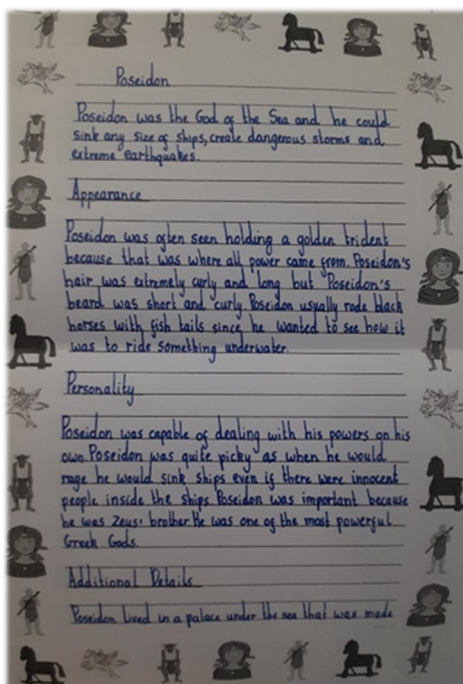 Poseidon
Poseidon was the God of the Sea and he could
sink any size of ships, create dangerous storms and
extreme earthquakes.
Appearance
Poseidon was often seen holding a golden trident
because that was where all power came from. Poseidon's
hair was extremely curly and long but Poseidon's
beard was short and curly. Poseidon usually rode black
horses with fish tails since he wanted to see how it
was to ride something underwater.
Personality
Poseidon was capable of dealing with his powers on his
own. Poseidon was quite picky as when he would
rage he would sink ships even if there were innocent
people inside the ships. Poseidon was important because
he was Zeus' brother. He was one of the most powerful
Greek Gods.
Additional Details
Poseidon lived in a palace under the sea that was made